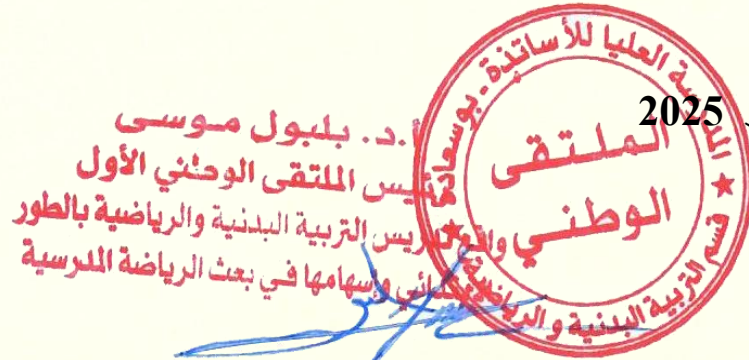 المدرسة العليا للأساتذة - بوسعادة
قسم التربية البدنية والرياضية
الملتقى
الوطني
2025
أ.د. بلبول موسى
رئيس الملتقى الوطني الأول
واقع تدريس التربية البدنية والرياضية بالطور
وإسهامها في بعث الرياضة المدرسية